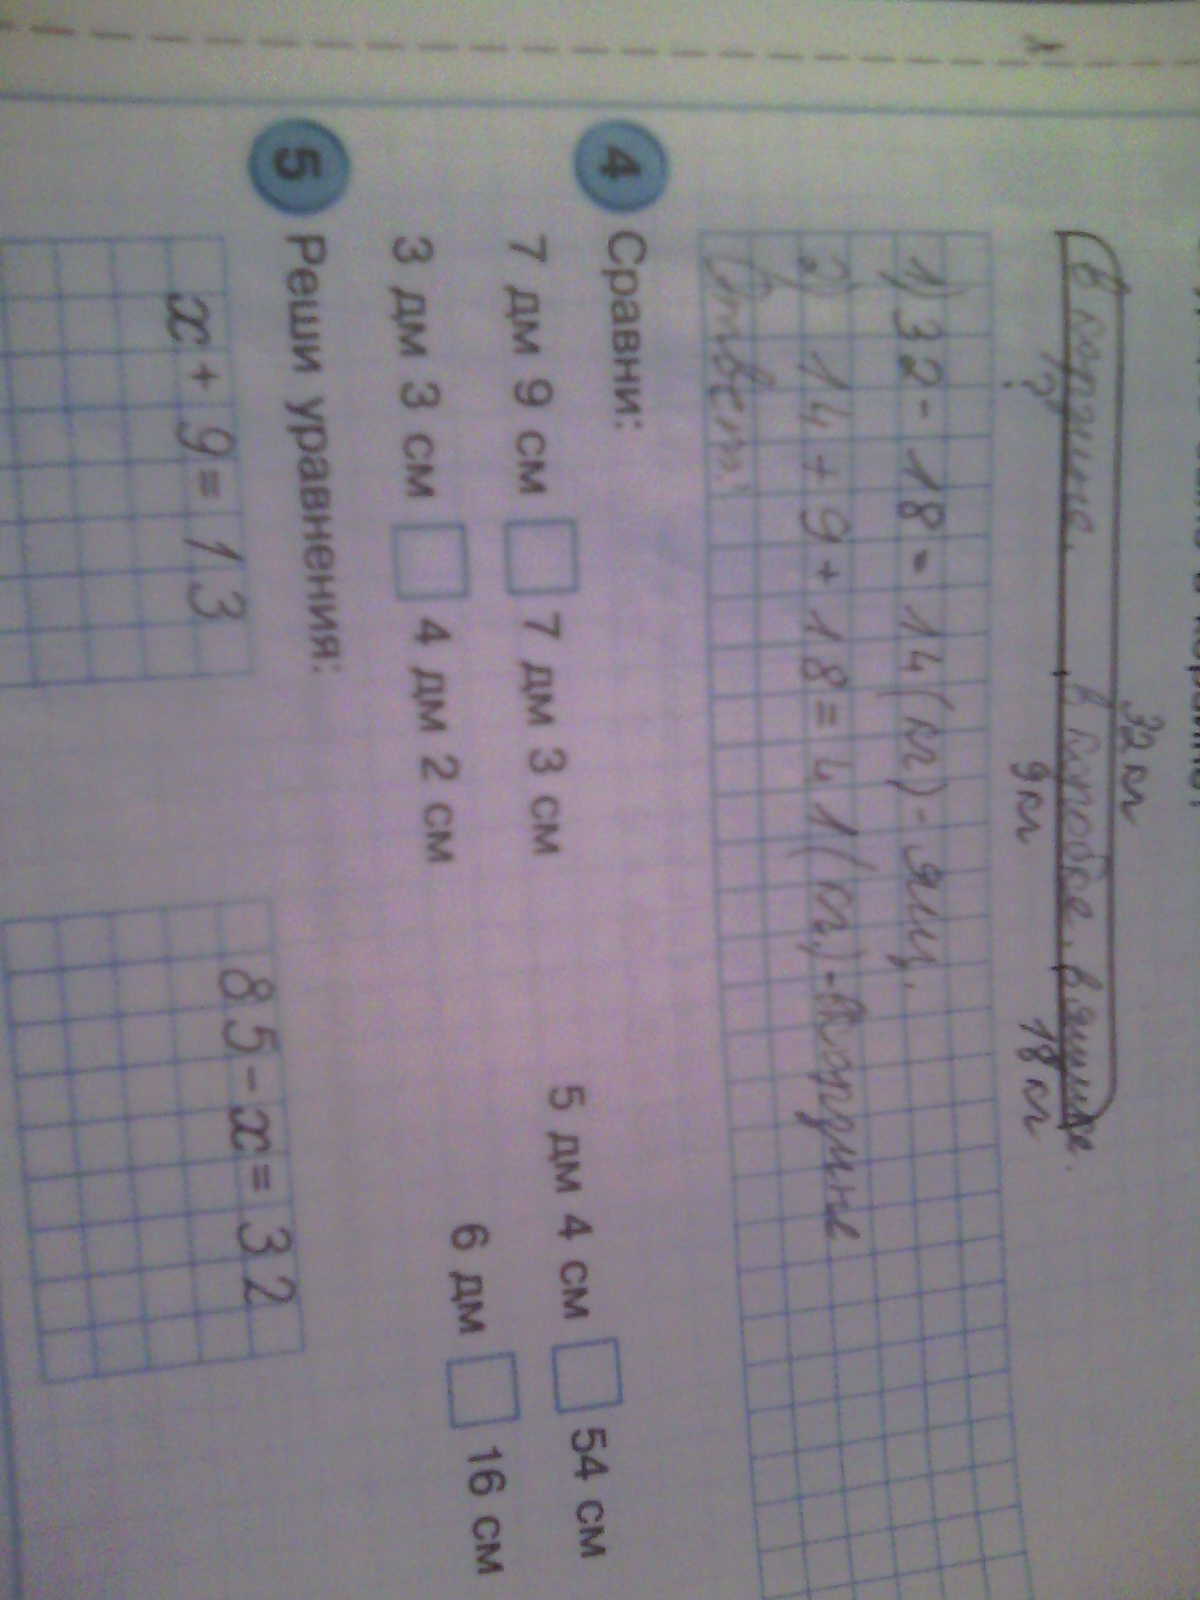 32 кг
В корзине, , в коробке, в ящике.
? 9 кг 18 кг
1) 32 - 18 = 14 (кг) - ящ.
2) 14 + 9 + 18 = 41 (кг) - корзине
Ответ:
4 Сравни:
7 дм 9 см 7 дм 3 см 5 дм 4 см 54 см
3 дм 3 см 4 дм 2 см 6 дм 16 см
5 Реши уравнения:
x + 9 = 13 85 - x = 32